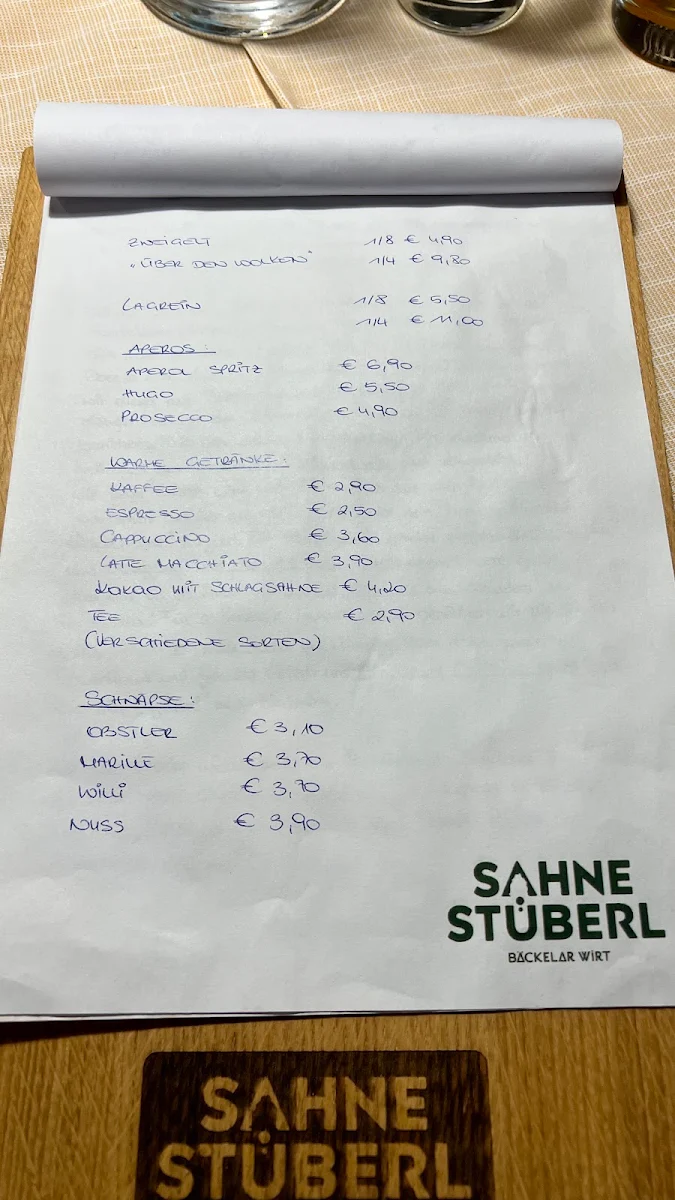 ZWEIGELT 1/8 € 4,90
„ÜBER DEN WOLKEN" 1/4 € 9,80
LAGREIN 1/8 € 5,50
1/4 € 11,00
APEROS:
APEROL SPRITZ € 6,90
HUGO € 5,50
PROSECCO € 4,90
WARME GETRÄNKE:
KAFFEE € 2,90
ESPRESSO € 2,50
CAPPUCCINO € 3,60
LATTE MACCHIATO € 3,90
KAKAO MIT SCHLAGSAHNE € 4,20
TEE € 2,90
(VERSCHIEDENE SORTEN)
SCHNÄPSE:
OBSTLER € 3,10
MARILLE € 3,70
WILLI € 3,70
NUSS € 3,90
SAHNE
STÜBERL
BÄCKELAR WIRT
SAHNE
STÜBERL